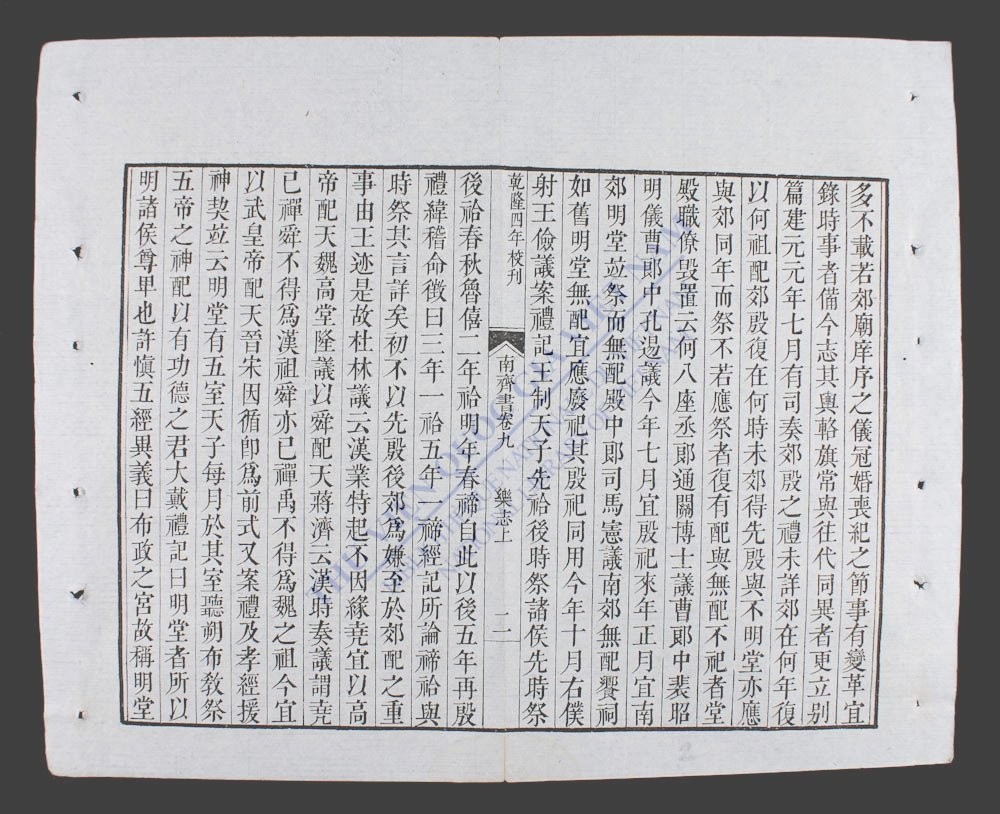 多不載若郊廟庠序之儀冠婚喪紀之節事有變革宜
錄時事者備今志其輿輅旗常與往代同異者更立别
篇建元元年七月有司奏郊殷之禮未詳郊在何年復
以何祖配郊殷復在何時未郊得先殷與不明堂亦應
與郊同年而祭不若應祭者復有配與無配不祀者堂
殿職僚毀置云何八座丞郎通關博士議曹郎中裴昭
明儀曹郎中孔逷議今年七月宜殷祀來年正月宜南
郊明堂並祭而無配殿中郎司馬憲議南郊無配饗祠
如舊明堂無配宜應廢祀其殷祀同用今年十月右僕
射王儉議案禮記王制天子先祫後時祭諸侯先時祭
乾隆四年校刊
南齊書卷九
樂志上
二
後祫春秋魯僖二年祫明年春禘自此以後五年再殷
禮緯稽命徵曰三年一祫五年一禘經記所論禘祫與
時祭其言詳矣初不以先殷後郊爲嫌至於郊配之重
事由王迹是故杜林議云漢業特起不因緣堯宜以高
帝配天魏高堂隆議以舜配天蔣濟云漢時奏議謂堯
已禪舜不得爲漢祖舜亦已禪禹不得爲魏之祖今宜
以武皇帝配天晉宋因循卽爲前式又案禮及孝經援
神契並云明堂有五室天子每月於其室聽朔布敎祭
五帝之神配以有功德之君大戴禮記曰明堂者所以
明諸侯尊卑也許慎五經異義曰布政之宮故稱明堂
2